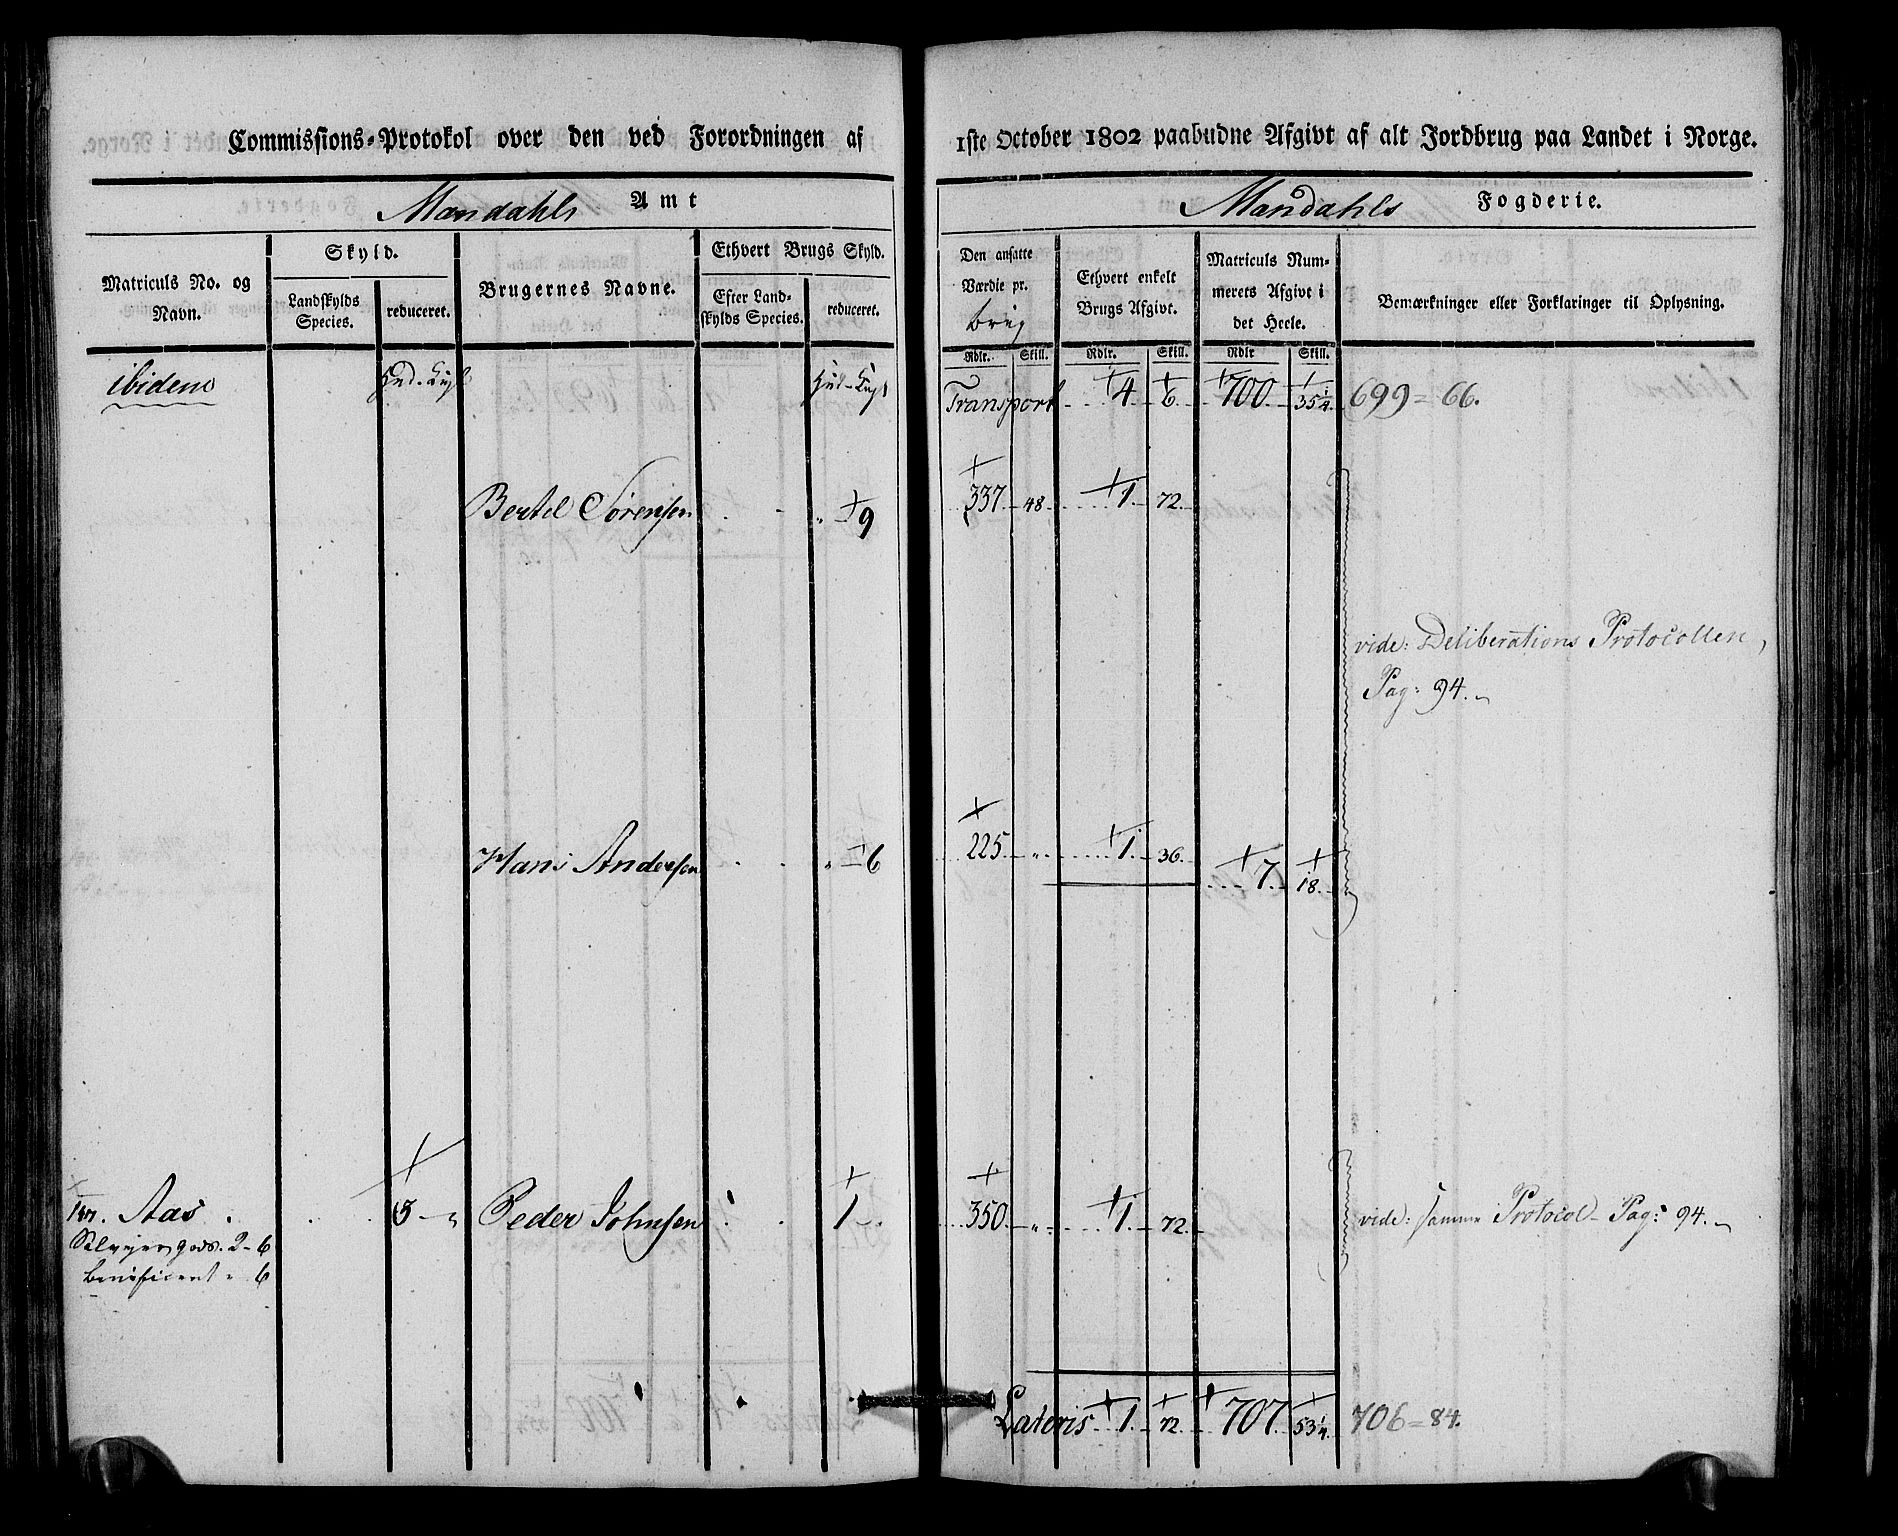 Commissions-Protokol over den ved Forordningen af
Mandahls Amt
Matriculs No. og Navn.
Skyld.
Landskylds Species.
reduceret.
Brugernes Navne.
Ethvert Brugs Skyld.
Efter Landskylds Species.
reduceret.
ibidem
Bertel Sørensen " 9
Hans Andersen " 6
Aas . 3 - " Peder Johnsen 1 -
2 - 6
beneficeret " 6
1ste October 1802 paabudne Afgivt af alt Jordbrug paa Landet i Norge.
Mandahls Fogderie.
Den ansatte Værdie pr. brug
Ethvert enkelt Brugs Afgivt.
Matriculs Nummerets Afgivt i det Heele.
Bemærkninger eller Forklaringer til Oplysning.
Rdlr. Skill. Rdlr. Skill. Rdlr Skill.
Transport 4. 6. 700. 35 1/4. 699 = 66.
337 48 1. 72.
vide: Deliberations Protocollen,
Pag: 94.
225 " 1. 36. 7. 18.
350 " 1. 72. vide: samme Protocol Pag: 94.
Lateris 1. 72. 707. 53 1/4. 706 = 84.